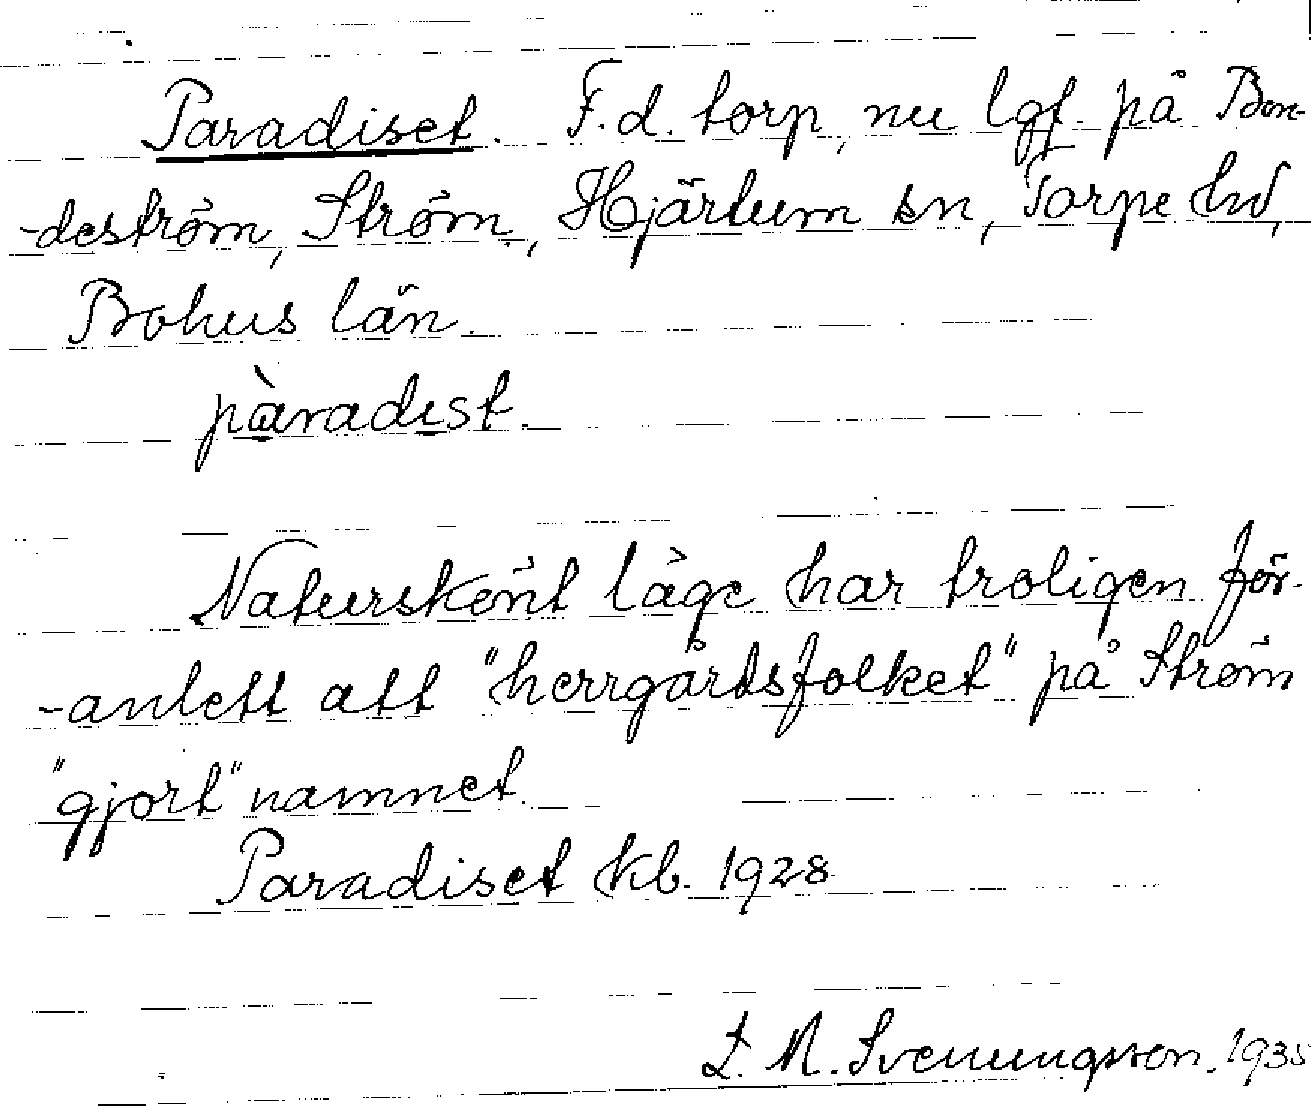 Paradiset. F.d. torp, nu lgf. på Bon-
-deström, Ström, Hjärtum sn, Torpe hd,
Bohus län.
pàradıst.
Naturskönt läge har troligen för-
-anlett att "herrgårdsfolket" på Ström
"gjort" namnet.
Paradiset kb. 1928
M. Svenungsson. 1935